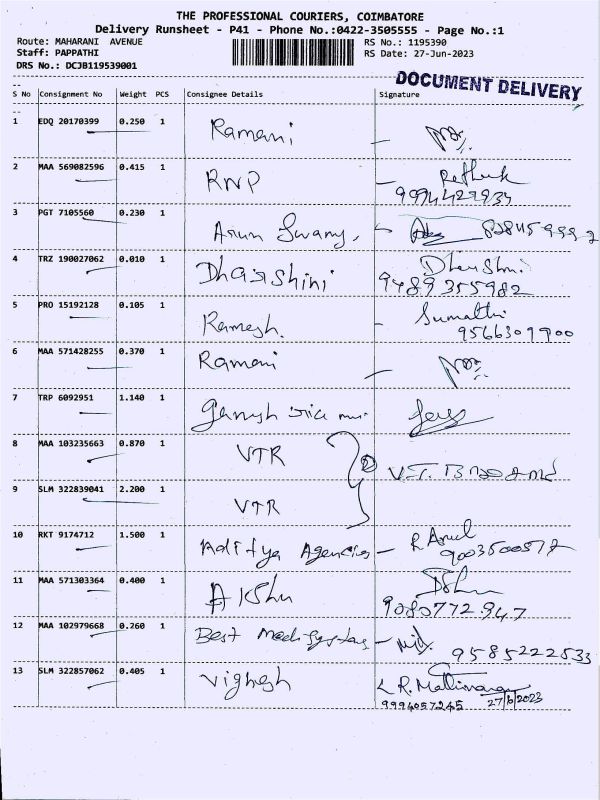 THE PROFESSIONAL COURIERS, COIMBATORE
Delivery Runsheet - P41 - Phone No.:0422-3505555 - Page No.:1
Route: MAHARANI AVENUE RS No.: 1195390
Staff: PAPPATHI RS Date: 27-Jun-2023
DRS No.: DCJB119539001
DOCUMENT DELIVERY
S No Consignment No Weight PCS Consignee Details Signature
1 EDQ 20170399 0.250 1 Ramani
2 MAA 569082596 0.415 1 RNP
3 PGT 7105560 0.230 1 Arun Swamy,
4 TRZ 190027062 0.010 1 Dharshini Dharshni
9489355982
5 PRO 15192128 0.105 1 Ramesh. Sumathi
9566309900
6 MAA 571428255 0.370 1 Ramani
7 TRP 6092951 1.140 1 Ganesh
8 MAA 103235663 0.870 1 VTR
9 SLM 322839041 2.200 1 VTR
10 RKT 9174712 1.500 1 Aditya Agencies - R Arul
11 MAA 571303364 0.400 1 Akshu
9080772947
12 MAA 102979668 0.260 1 Best
9585222533
13 SLM 322857062 0.405 1 Vighesh
9994057245 27/6/2023